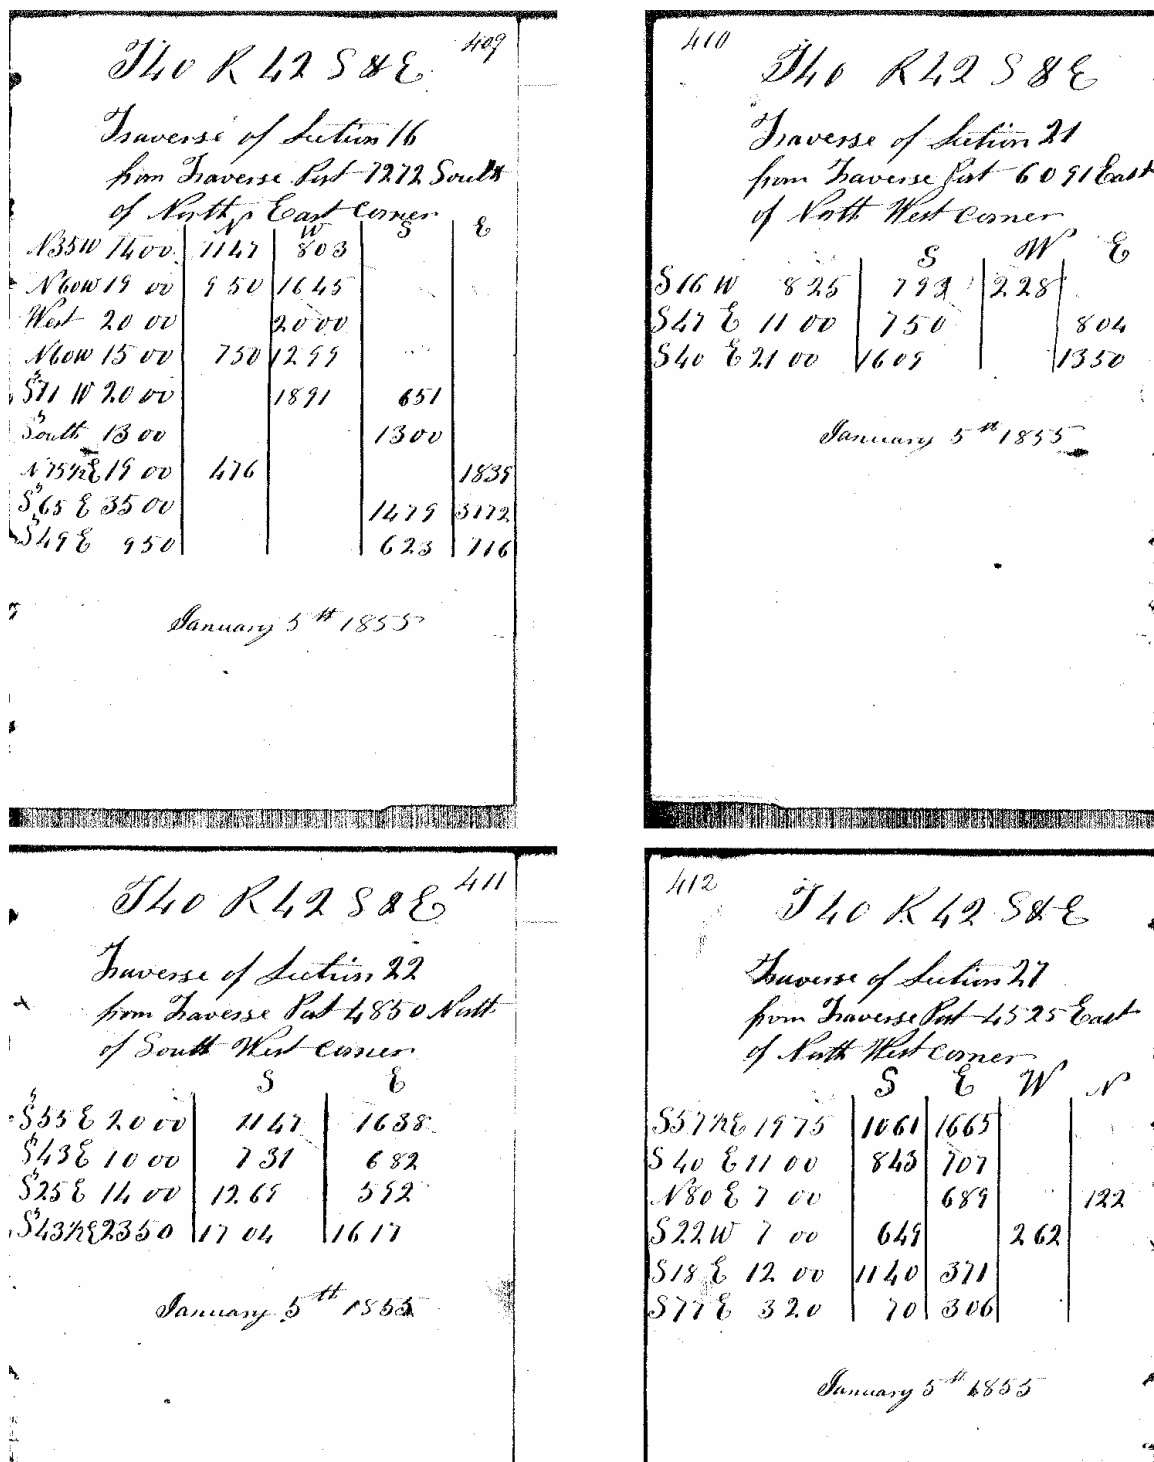 409
T40 R42 S&E
Traverse of Section 16
from Traverse Post 7272 South
of North East Corner
N W S E
N35W 14 00 1147 803
N60W 19 00 950 1645
West 20 00 2000
N60W 15 00 750 1299
S71 W 20 00 1891 651
South 13 00 1300
N75½E 19 00 476 1839
S65 E 35 00 1479 3172
S49 E 950 623 716
January 5th 1855
410
T40 R42 S&E
Traverse of Section 21
from Traverse Post 6091 East
of North West Corner
S W E
S16 W 825 793 228
S47 E 11 00 750 804
S40 E 21 00 1609 1350
January 5th 1855
411
T40 R42 S&E
Traverse of Section 22
from Traverse Post 4850 North
of South West Corner
S E
S55 E 20 00 1147 1638
S43 E 10 00 731 682
S25 E 14 00 12 69 592
S43½E 23 50 17 04 1617
January 5th 1855
412
T40 R42 S&E
Traverse of Section 27
from Traverse Post 4525 East
of North West Corner
S E W N
S57½E 19 75 1061 1665
S40 E 11 00 843 707
N80 E 7 00 689 122
S22W 7 00 649 262
S18 E 12 00 1140 371
S77 E 320 70 306
January 5th 1855